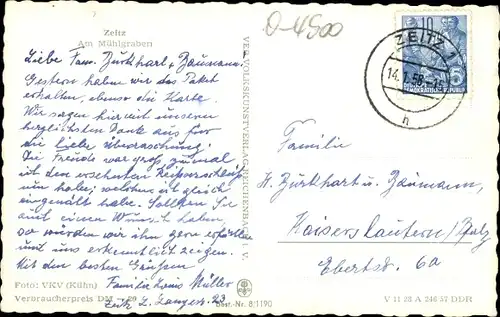 Zeitz
Am Mühlgraben
Liebe Fam. Burkhart u. Baumann.
Gestern haben wir das Paket
erhalten, ebenso die Karte.
Wir sagen hiermit unseren
herzlichsten Dank aus für
die liebe Überraschung!
Die Freude war groß, zumal
ist den ersehnten Reißverschluß
nun habe; welchen ich gleich
eingenäht habe. Sollten Sie
mal einen Wunsch haben,
so würden wir ihn gern erfüllen
und uns erkenntlich zeigen.
Mit den besten Grüßen
Familie Louis Müller
Zeitz L. Langestr. 23
Foto: VKV (Kühn)
Verbraucherpreis DM
Best.-Nr. 8/1190
VEB VOLKSKUNSTVERLAG REICHENBACH I. V.
0-4500
10
DEMOKRATISCHE REPUBLIK
ZEITZ 1
14.1.58
h
Familie
H. Burkhart u. Baumann,
Kaiserslautern/Pfalz
Ebertstr. 6a
V 11 28 A 246/57 DDR